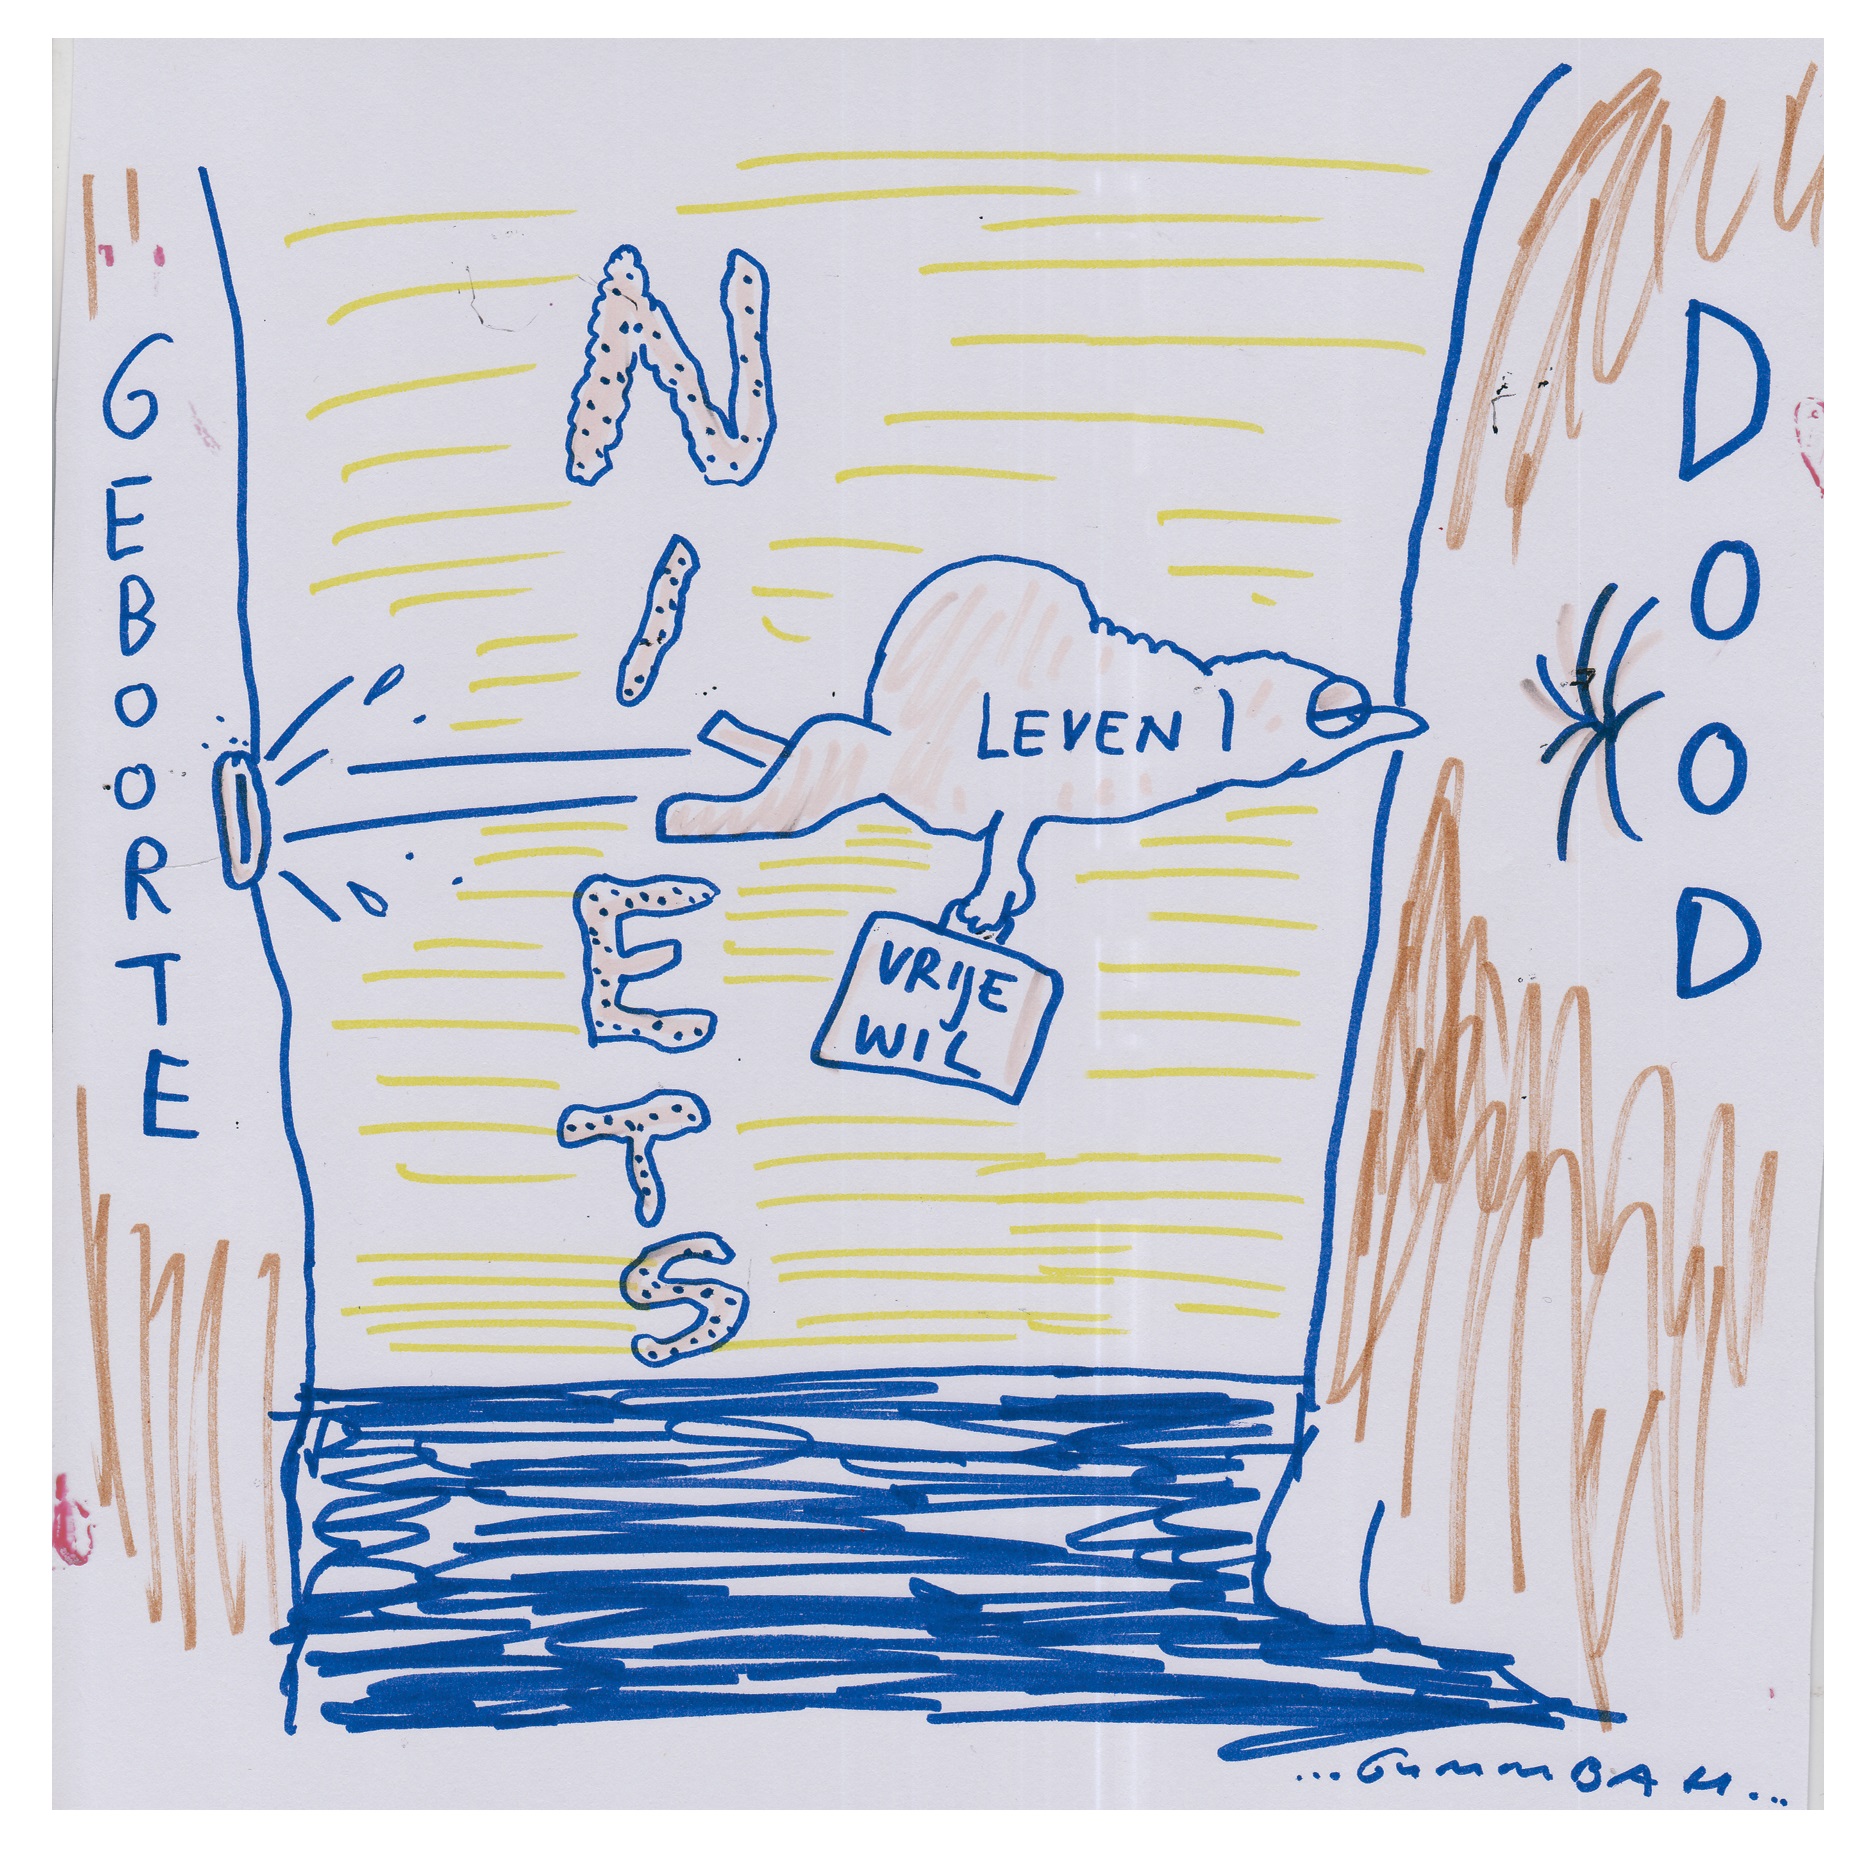 GEBOORTE
NIETS
LEVEN!
VRIJE
WIL
DOOD
...GUMMBAH...